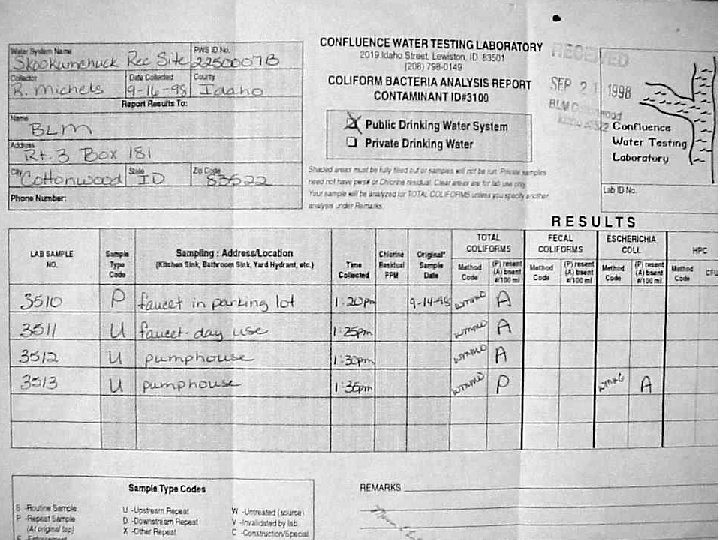 Water System Name PWS ID No.
Skookumchuck Rec Site 2250007B
Collector Date Collected County
R. Michels 9-16-98 Idaho
Report Results To:
Name
BLM
Address
Rt. 3 Box 181
City State Zip Code
Cottonwood ID 83522
Phone Number:
CONFLUENCE WATER TESTING LABORATORY
2019 Idaho Street, Lewiston, ID 83501
(208) 798-0149
COLIFORM BACTERIA ANALYSIS REPORT
CONTAMINANT ID#3100
Public Drinking Water System
Private Drinking Water
Shaded areas must be fully filled out or samples will not be run. Private samples
need not have pwsid or Chlorine residual. Clear areas are for lab use only.
Your sample will be analyzed for TOTAL COLIFORMS unless you specify another
analysis under Remarks.
RECEIVED
SEP 21 1998
BLM
Confluence
Water Testing
Laboratory
Lab ID No.
RESULTS
LAB SAMPLE NO. Sample Type Code Sampling : Address/Location (Kitchen Sink, Bathroom Sink, Yard Hydrant, etc.) Time Collected Chlorine Residual PPM Original Sample Date TOTAL COLIFORMS FECAL COLIFORMS ESCHERICHIA COLI HPC
Method Code (P) resent (A) bsent #/100 ml Method Code (P) resent (A) bsent #/100 ml Method Code (P) resent (A) bsent #/100 ml Method Code CFU
3510 P faucet in parking lot 1:20pm 9-14-98 A
3511 U faucet day use 1:25pm A
3512 U pumphouse 1:30pm A
3513 U pumphouse 1:35pm P A
Sample Type Codes
S -Routine Sample U -Upstream Repeat W -Untreated (source)
P -Repeat Sample D -Downstream Repeat V -Invalidated by lab
(At original tap) X -Other Repeat C -Construction/Special
REMARKS